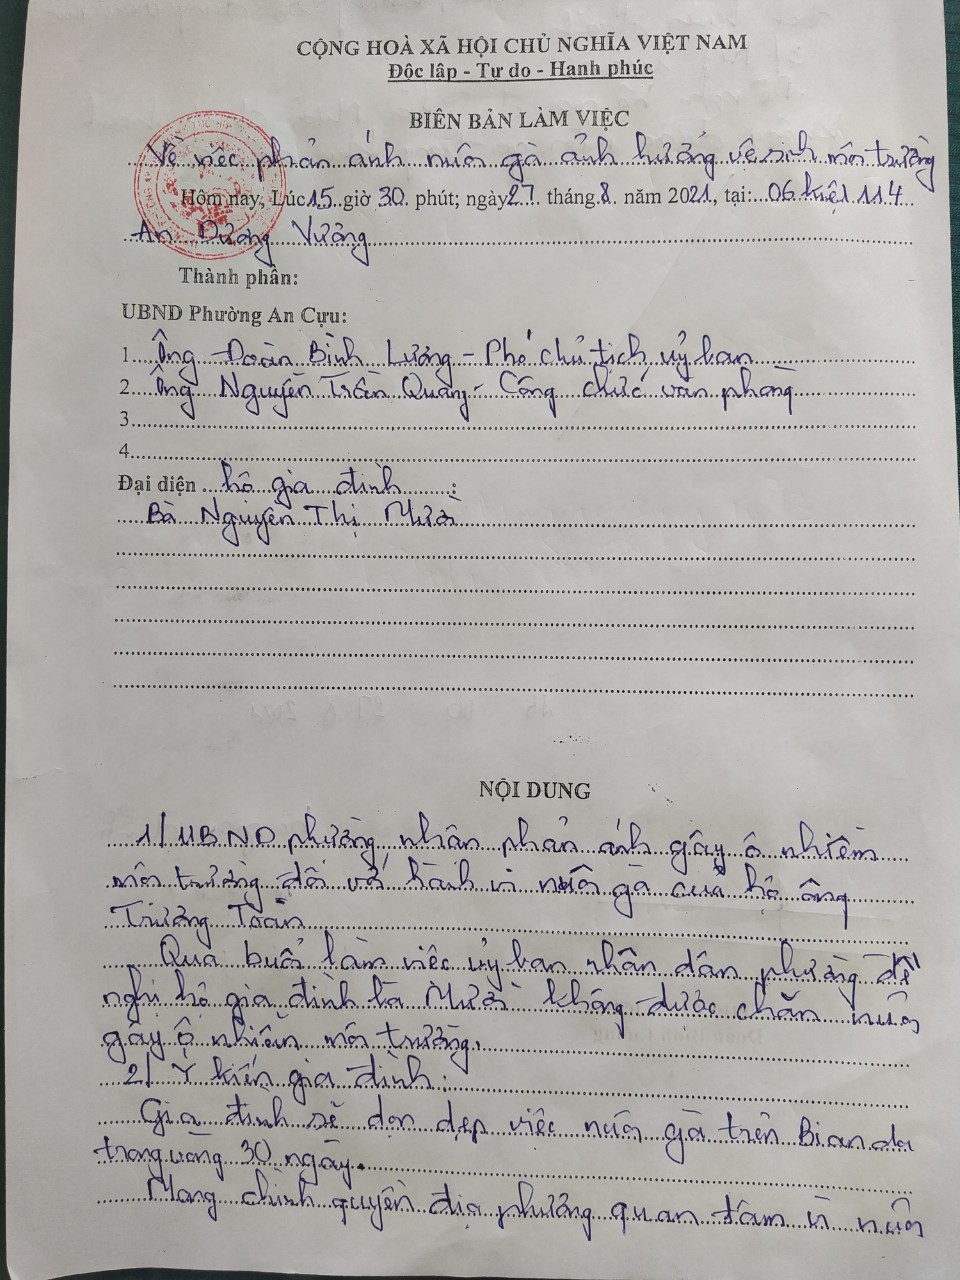 CỘNG HOÀ XÃ HỘI CHỦ NGHĨA VIỆT NAM
Độc lập - Tự do - Hạnh phúc
BIÊN BẢN LÀM VIỆC
Về việc phản ánh nuôi gà ảnh hưởng vệ sinh môi trường
Hôm nay, Lúc 15 giờ 30 phút; ngày 27 tháng 8 năm 2021, tại: 06 kiệt 114
An Dương Vương
Thành phần:
UBND Phường An Cựu:
1. Ông Đoàn Bình Lương - Phó chủ tịch uỷ ban
2. Ông Nguyễn Trần Quang - Công chức văn phòng
3.
4.
Đại diện hộ gia đình :
Bà Nguyễn Thị Mười
NỘI DUNG
1/ UBND phường nhân phản ánh gây ô nhiễm
môi trường đối với hành vi nuôi gà của hộ ông
Trương Toàn
Qua buổi làm việc uỷ ban nhân dân phường đề
nghị hộ gia đình bà Mười không được chăn nuôi
gây ô nhiễm môi trường.
2/ Ý kiến gia đình:
Gia đình sẽ dọn dẹp việc nuôi gà trên
trong vòng 30 ngày.
Mong chính quyền địa phương quan tâm vì nuôi